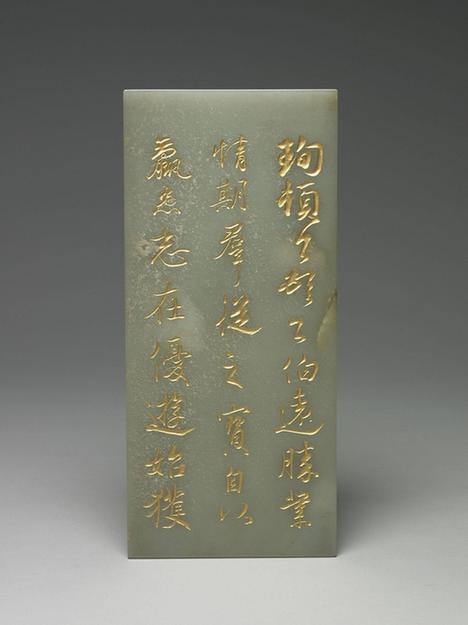 珣頓首頓首伯遠勝業
情期羣從之寶自以
羸患志在優遊始獲